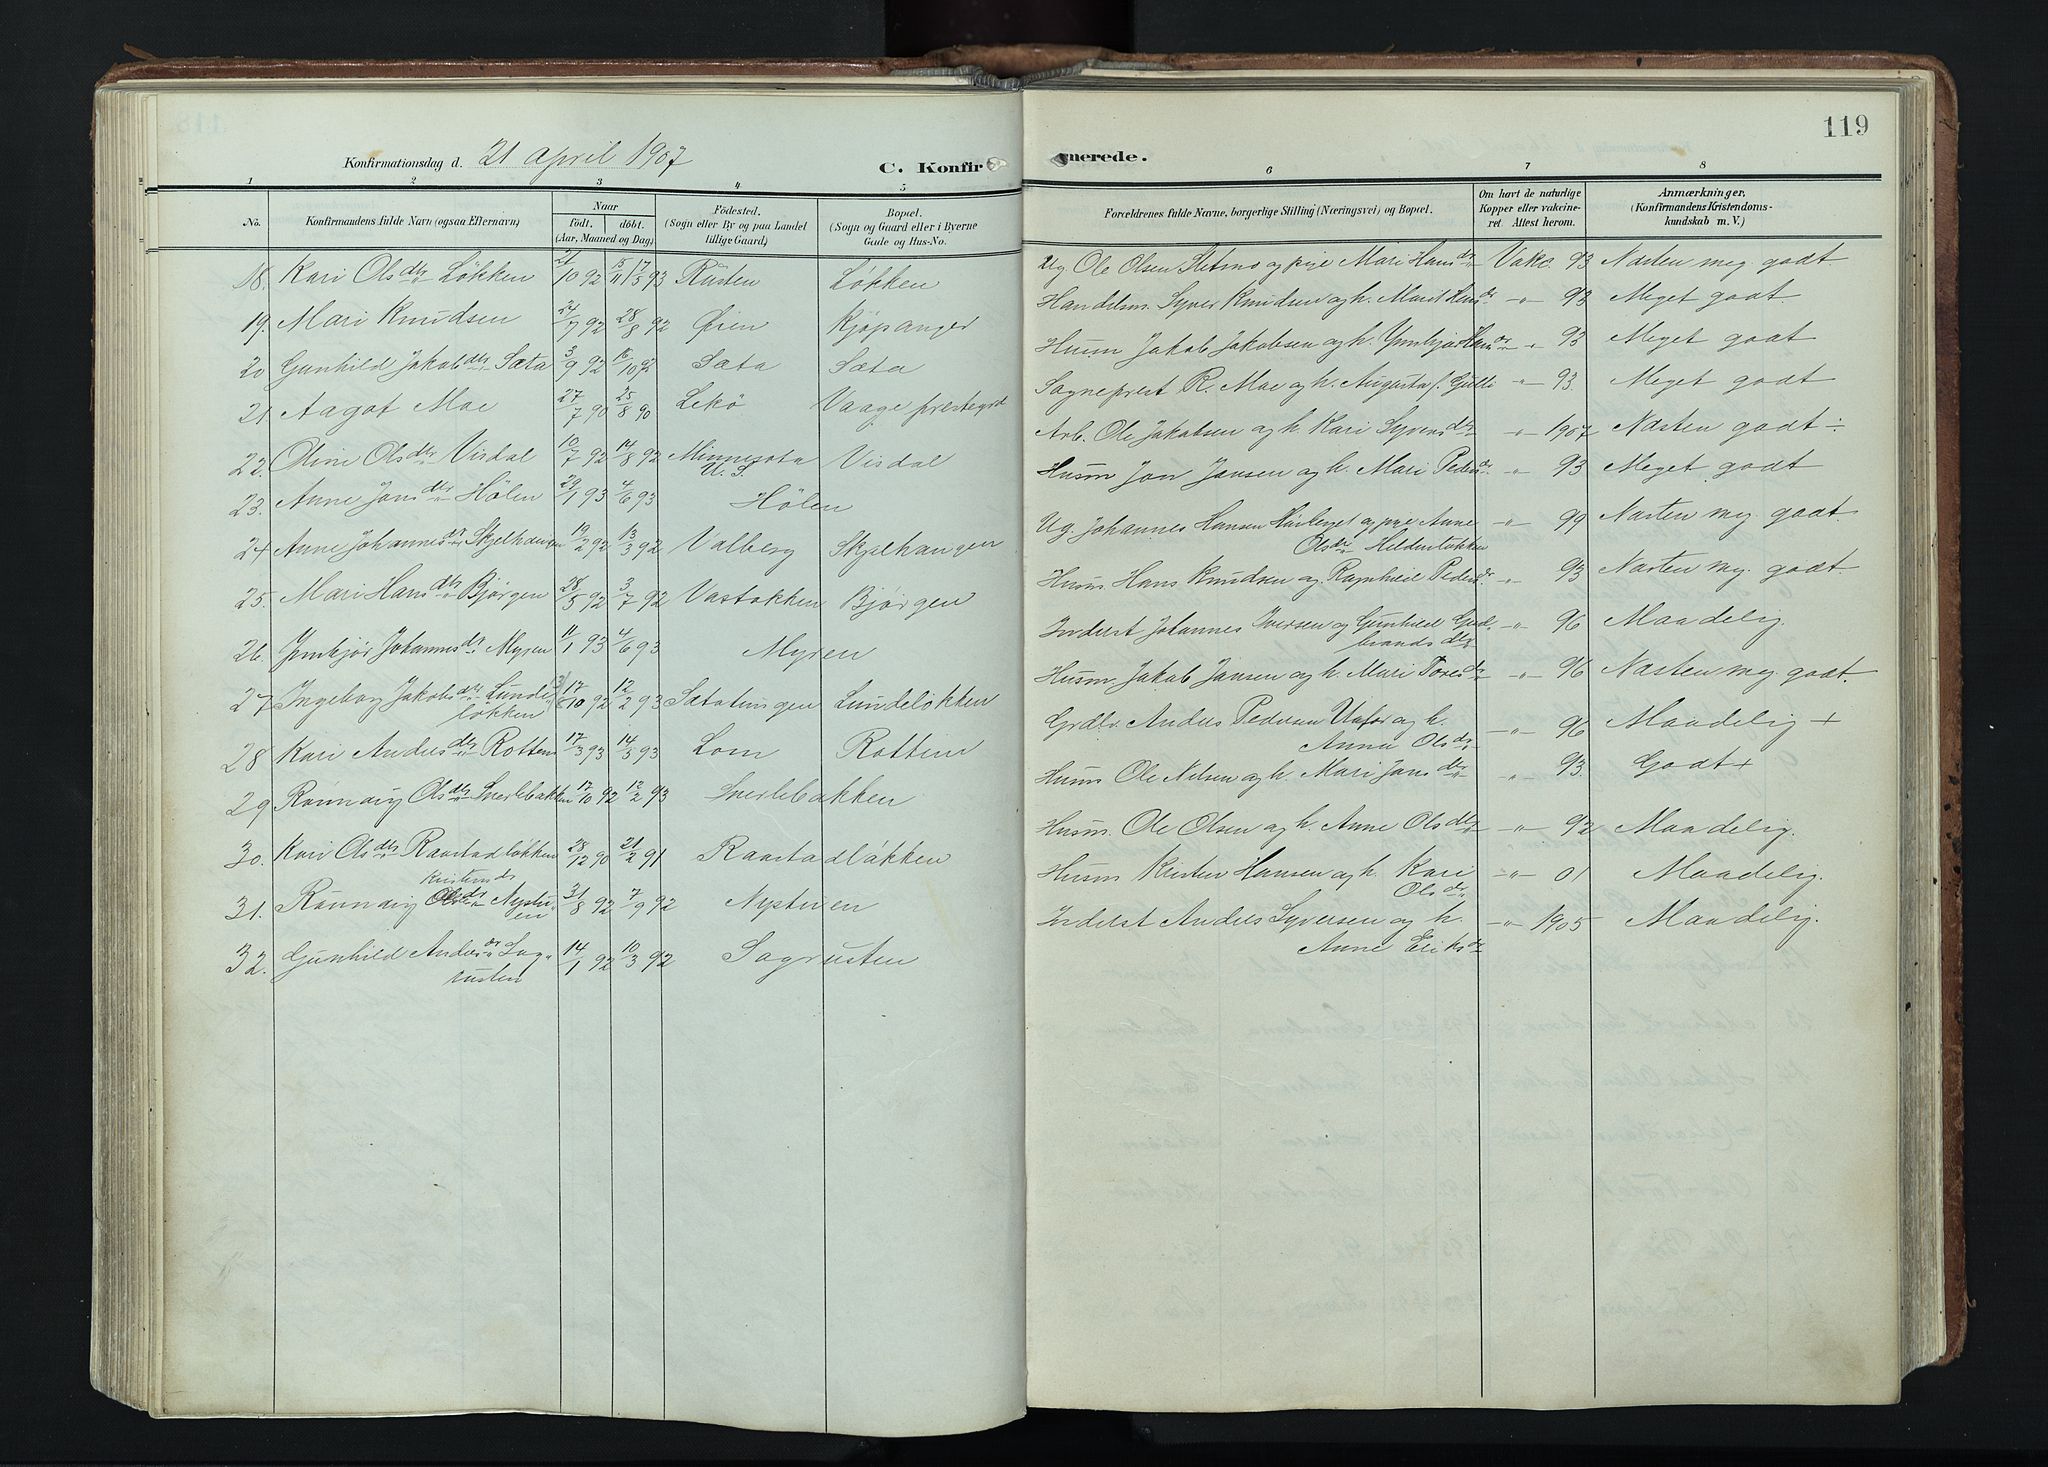 119
Konfirmationsdag d. 21 April 1907
C. Konfirmerede.
1 2 3 4 5 6 7 8
No.
Konfirmandens fulde Navn (ogsaa Efternavn)
Naar
født. døbt.
(Aar, Maaned og Dag)
Fødested.
(Sogn eller By og paa Landet
tillige Gaard)
Bopæl.
(Sogn og Gaard eller i Byerne
Gade og Hus-No.
Forældrenes fulde Navne, borgerlige Stilling (Næringsvei) og Bopæl.
Om havt de naturlige
Kopper eller vakcine-
ret Attest herom.
Anmærkninger,
(Konfirmandens Kristendoms-
kundskab m. V.)
18. Kari Olsdtr Løkken 21/10 92 15/11 17/5 93 Rusten Løkken Ug. Ole Olsen Sletmo og pige Mari Hansdr Vakc. 93 Næsten meg. godt.
19. Mari Knudsen 24/7 92 28/8 92 Øien Kjøpanger Handelsm. Syver Knudsen og h. Marit Hansdr " 93 Meget godt
20 Gunhild Jakobsdtr Sæta 3/9 92 16/10 92 Sæta Sæta Husm Jakob Jakobsen og h. Ymbjør Hansdr " 93 Meget godt
21. Aagot Moe 27/7 90 25/8 90 Lekö Vaage prestegrd Sogneprest R. Moe og h. Augusta f. Gulli " 93. Meget godt
22. Oline Olsdtr Visdal 10/7 92 14/8 92 Minnesota U. S. Visdal Arb. Ole Jakobsen og h. Kari Syversdtr " 1907 Næsten godt ÷
23. Anne Jonsdtr Hølen 29/1 93 4/6 93 Hølen Husm Jon Jonsen og h. Mari Pedersdr " 93 Meget godt
24 Anne Johannesdr Skjelhaugen 19/2 92 13/3 92 Valberg Skjelhaugen Ug. Johannes Hansen og pige Anne
Olsdtr " 99 Næsten meg. godt.
25. Mari Hansdtr Bjørgen 28/5 92 3/7 92 Vastokken Bjørgen Husm. Hans Knudsen og Ragnhild Pedersdr " 93 Næsten meg. godt.
26. Ymbjør Johannesdr. Myren 11/1 93 4/6 93 Myren Inderst Johannes Iversen og Gunhild Gud-
brandsdtr " 96 Maadelig.
27 Ingeborg Jakobsdtr Lunde-
løkken 17/10 92 12/2 93 Sætatungen Lundeløkken Husm. Jakob Jonsen og h. Mari Toresdr " 96 Næsten meg. godt.
28 Kari Andersdtr Rotten 17/3 93 14/5 93 Lom Rotten Grdbr. Anders Pedersen og h.
Anna Olsdr. " 96 Maadelig +
29 Rønnaug Olsdtr Snerlebakken 17/10 92 12/2 93 Snerlebakken Husm Ole Nelsen og h. Mari Jonsdtr " 93. Godt +
30. Kari Olsdtr Raastadløkken 28/12 90 21/2 91 Raastadløkken Husm. Ole Olsen og h. Anne Olsdtr " 92 Maadelig.
Kristensdr
31. Rønnaug Olsdr Nystu-
en 31/8 92 7/9 92 Nystuen Husm Kristen Hansen og h. Kari
Olsdr " 01 Maadelig.
32. Gunhild Andersdr Sag-
rusten 14/1 92 10/3 92 Sagrusten Inderst Anders Syversen og h.
Anne Eriksdr " 1905 Maadelig.